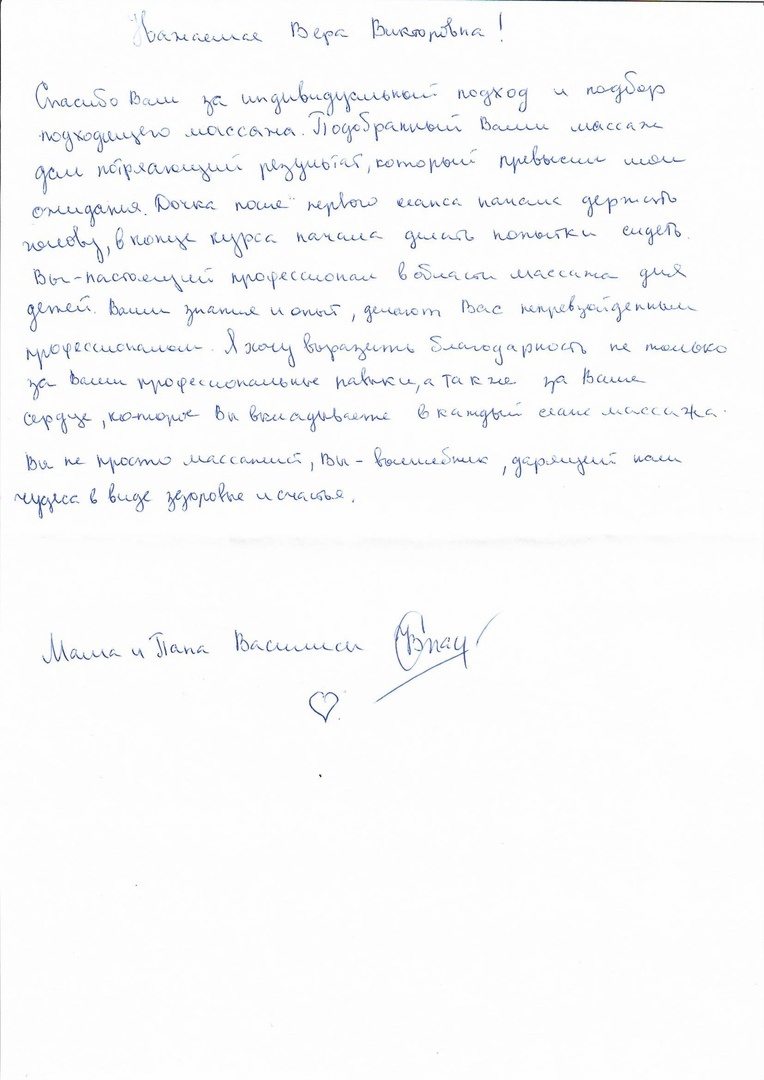 Уважаемая Вера Викторовна!
Спасибо Вам за индивидуальный подход и подбор
подходящего массажа. Подобранный Вами массаж
дал потряающий результат, который превысил мои
ожидания. Дочка после первого сеанса начала держать
голову, в конце курса начала делать попытки сидеть.
Вы - настоящий профессионал в области массажа для
детей. Ваши знания и опыт, делают Вас непревзойденным
профессионалом. Я хочу выразить благодарность не только
за Ваши профессиональные навыки, а также за Ваше
сердце, которое Вы вкладываете в каждый сеанс массажа.
Вы не просто массажист, Вы - волшебник, дарящий нам
чудеса в виде здоровье и счастья.
Мама и Папа Василисы